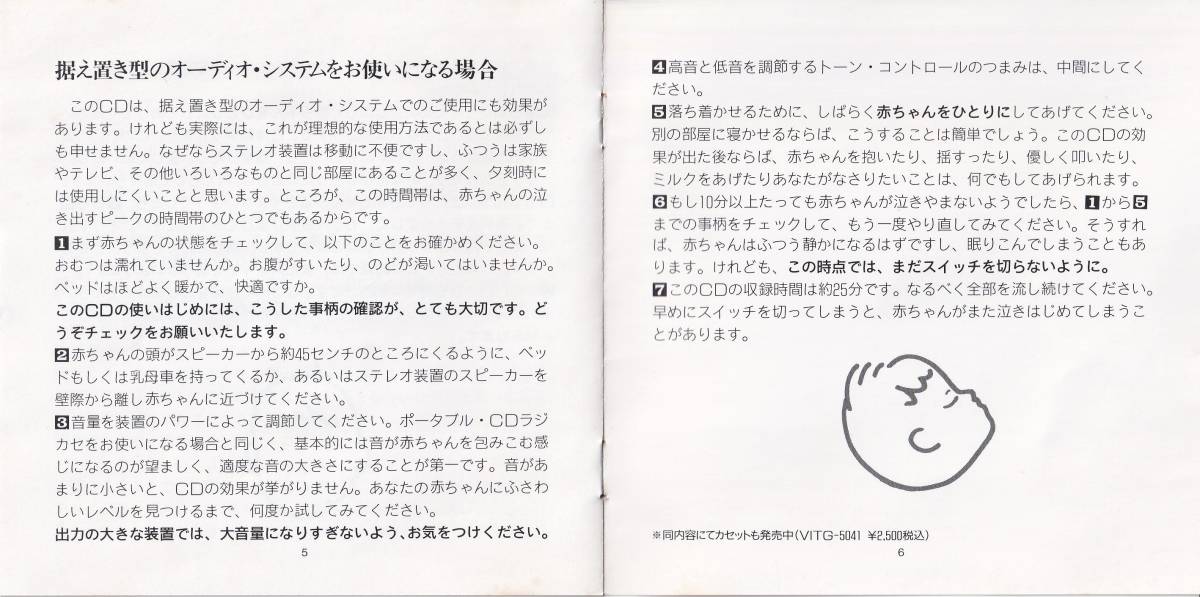 据え置き型のオーディオ・システムをお使いになる場合
このCDは、据え置き型のオーディオ・システムでのご使用にも効果が
あります。けれども実際には、これが理想的な使用方法であるとは必ずし
も申せません。なぜならステレオ装置は移動に不便ですし、ふつうは家族
やテレビ、その他いろいろなものと同じ部屋にあることが多く、夕刻時に
は使用しにくいことと思います。ところが、この時間帯は、赤ちゃんの泣
き出すピークの時間帯のひとつでもあるからです。
1まず赤ちゃんの状態をチェックして、以下のことをお確かめください。
おむつは濡れていませんか。お腹がすいたり、のどが渇いてはいませんか。
ベッドはほどよく暖かで、快適ですか。
このCDの使いはじめには、こうした事柄の確認が、とても大切です。ど
うぞチェックをお願いいたします。
2赤ちゃんの頭がスピーカーから約45センチのところにくるように、ベッ
ドもしくは乳母車を持ってくるか、あるいはステレオ装置のスピーカーを
壁際から離し赤ちゃんに近づけてください。
3音量を装置のパワーによって調節してください。ポータブル・CDラジ
カセをお使いになる場合と同じく、基本的には音が赤ちゃんを包みこむ感
じになるのが望ましく、適度な音の大きさにすることが第一です。音があ
まりに小さいと、CDの効果が挙がりません。あなたの赤ちゃんにふさわ
しいレベルを見つけるまで、何度か試してみてください。
出力の大きな装置では、大音量になりすぎないよう、お気をつけください。
5
4高音と低音を調節するトーン・コントロールのつまみは、中間にしてく
ださい。
5落ち着かせるために、しばらく赤ちゃんをひとりにしてあげてください。
別の部屋に寝かせるならば、こうすることは簡単でしょう。このCDの効
果が出た後ならば、赤ちゃんを抱いたり、揺すったり、優しく叩いたり、
ミルクをあげたりあなたがなさりたいことは、何でもしてあげられます。
6もし10分以上たっても赤ちゃんが泣きやまないようでしたら、1から5
までの事柄をチェックして、もう一度やり直してみてください。そうすれ
ば、赤ちゃんはふつう静かになるはずですし、眠りこんでしまうこともあ
ります。けれども、この時点では、まだスイッチを切らないように。
7このCDの収録時間は約25分です。なるべく全部を流し続けてください。
早めにスイッチを切ってしまうと、赤ちゃんがまた泣きはじめてしまうこ
とがあります。
※同内容にてカセットも発売中(VITG-5041 ¥2,500税込)
6